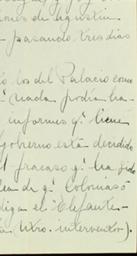 ones de Agustin
pasando tres dias
los del Palacio como
nada podian ha
informes q! tiene
gobierno está decidido
l fracaso q! ha sido
ea de q! Colomas
diga el "Elefante
otro interventor).